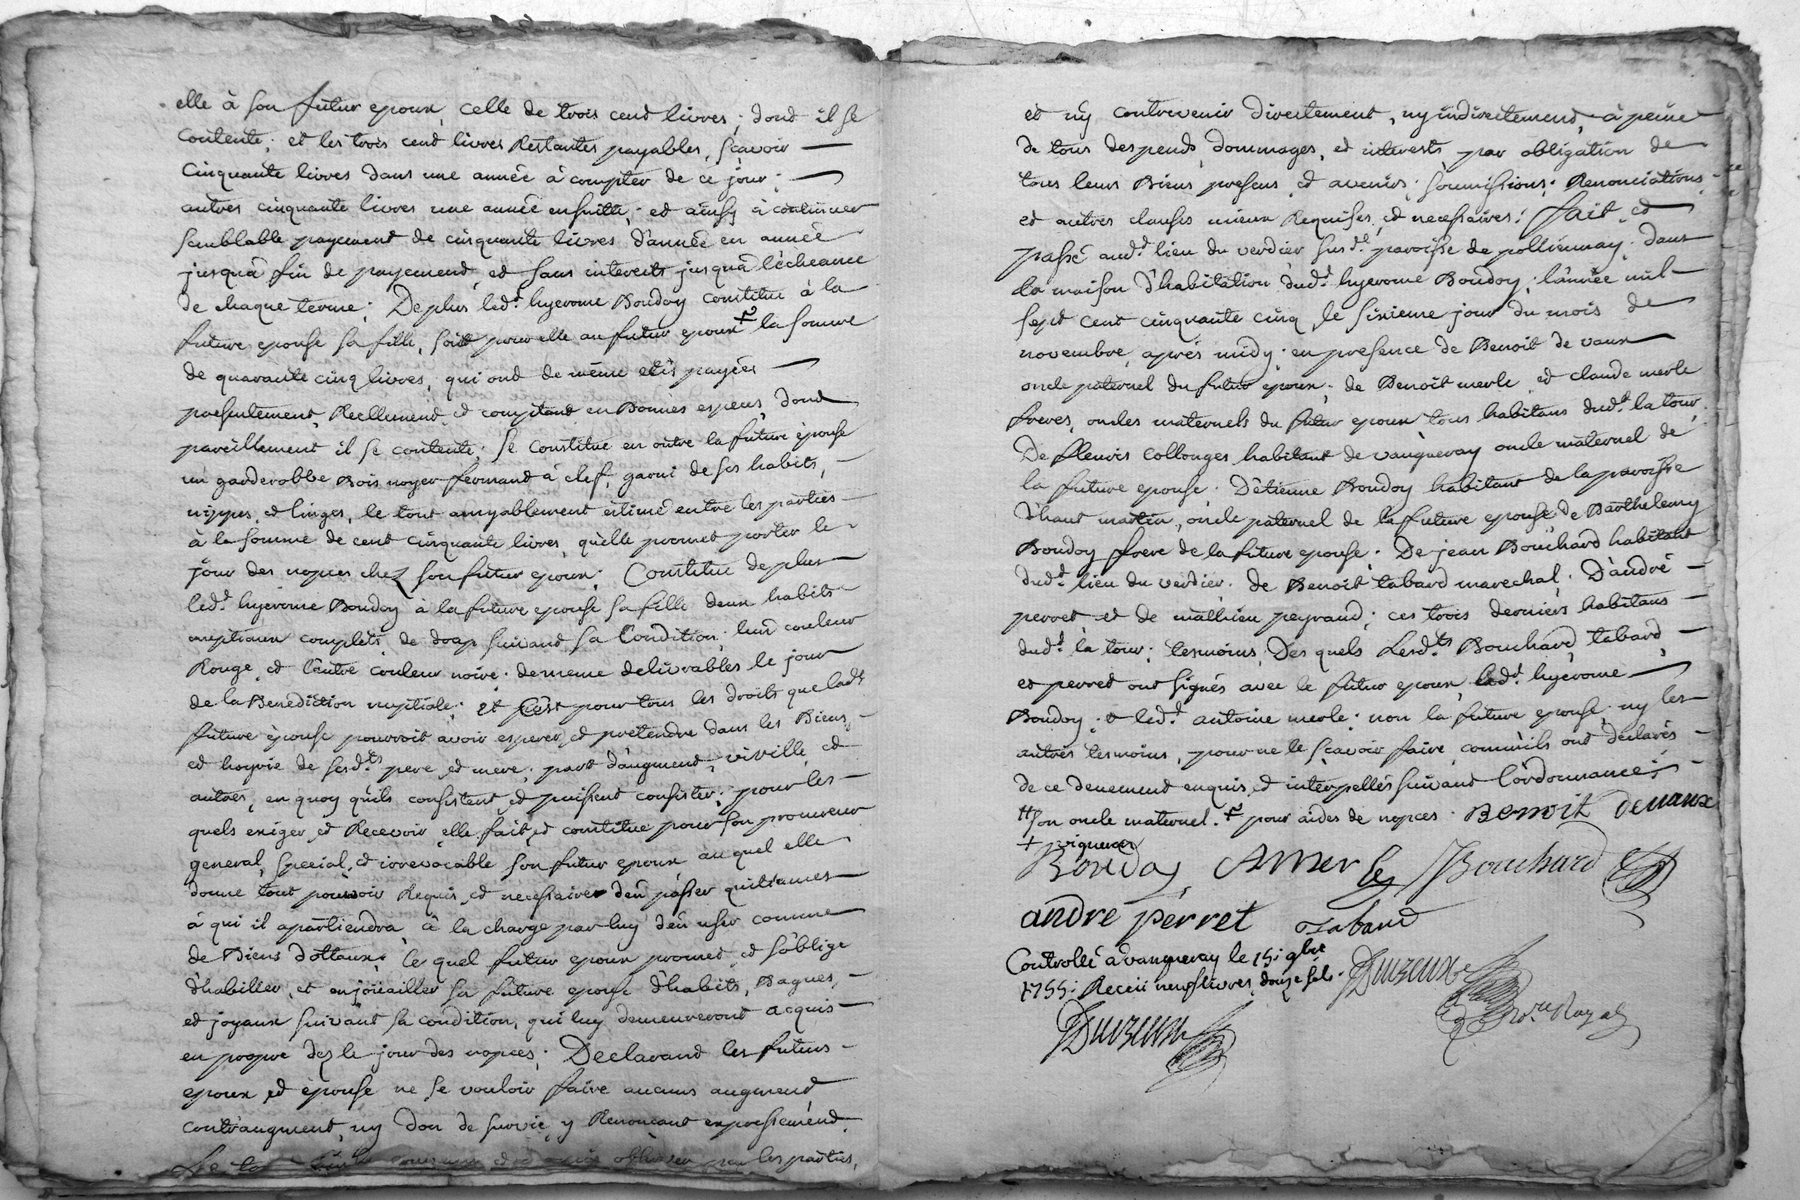 elle à son futur epoux, celle de trois cent livres, dont il se
contente; et les trois cent livres Restantes payables, sçavoir
Cinquante livres dans une année à compter de ce jour;
autres cinquante livres une année ensuitte; et ainsy à continuer
semblable payement de cinquante livres d'année en année
jusqu'à fin de payement, et sans interests jusqu'a l'écheance
de chaque terme; De plus led.t hyerome Boudoy constitue à la
future epouse sa fille, soit pour elle au futur epoux la somme
de quarante cinq livres, qui ont de même etés payées
presentement, Reellement et comptant en Bonnes especes, dont
pareillement il se contente; se Constitue en outre la future épouse
un garderobbe Bois noyer fermant à clef, garni de ses habits,
nippes, et linges, le tout amyablement estimé entre les parties
à la somme de cent cinquante livres, qu'elle promet porter le
jour des nopces chez son futur epoux; Constitue de plus
led.t hyerome Boudoy à la future epouse sa fille deux habits
nuptiaux complets, de drap suivant sa Condition; l'un couleur
Rouge, et l'autre couleur noire; de meme delivrables le jour
de la Benediction nuptiale; et c'est pour tous les droits que lad.te
future épouse pourroit avoir esperer, et pretendre dans les Biens,
et hoyrie de sesd.ts pere, et mere; part d'augment, virille, et
autres, en quoy qu'ils consistent, et puissent consister; pour les
quels exiger, et Recevoir elle fait, et constitue pour son procureur
general, special, et irrevocable son futur epoux au quel elle
donne tout pouvoir Requis, et necessaire d'en passer quittances
à qui il apartiendra, à la charge par luy d'en user comme
de Biens dottaux; le quel futur epoux promet, et s'oblige
d'habiller, et enjoüailler sa future epouse d'habits, Bagues,
et joyaux suivant sa condition, qui luy demeureront acquis
en propre dez le jour des nopces; Declarant les futurs
epoux, et épouse ne se vouloir faire aucuns augment,
contraugment, ny don de survie, y Renonçant expressement.
les parties,
et ny contrevenir directement, ny indirectement, à peine
de tous despends, dommages, et interests, par obligation de
tous leurs Biens presens, et avenirs; soumissions; Renonciations;
et autres clauses mieux Requises, et necessaires; fait, et
passé aud.t lieu du verdier susd.te paroisse de pollionnay; dans
la maison d'habitation dud.t hyerome Boudoy; l'année mil
sept cent cinquante cinq, le sixieme jour du mois de
novembre, aprés midy; en presence de Benoit de vaux
oncle paternel du futur epoux; de Benoit merle, et claude merle
freres, oncles maternels du futur epoux tous habitans dud.t la tour,
De fleuris Collonges habitant de vaugneray oncle maternel de
la future epouse; D'étienne Boudoy habitant de la paroisse
d'haut martin, oncle paternel de la future epouse de Barthelemy
Boudoy frere de la future epouse; De jean Bouchard habitant
dud.t lieu du verdier; de Benoit tabard marechal; D'andré
perret, et de mathieu peyraud; ces trois derniers habitans
dud.t la tour; tesmoins, Des quels Lesd.ts Bouchard, tabard,
et perret ont signés avec le futur epoux, led.t hyerome
Boudoy; et led.t antoine merle; non la future epouse, ny les
autres tesmoins, pour ne le sçavoir faire, comm'ils ont déclarés
de ce duement enquis, et interpellés suivant l'ordonnance;
son oncle maternel. pour aides de nopces. Benoit devaux
vigneron
Boudoy AMerle Bouchard
andré perret Tabard
Controllé a vaugneray le 15: 9bre
1755: Receu neuf livres, douze sols.